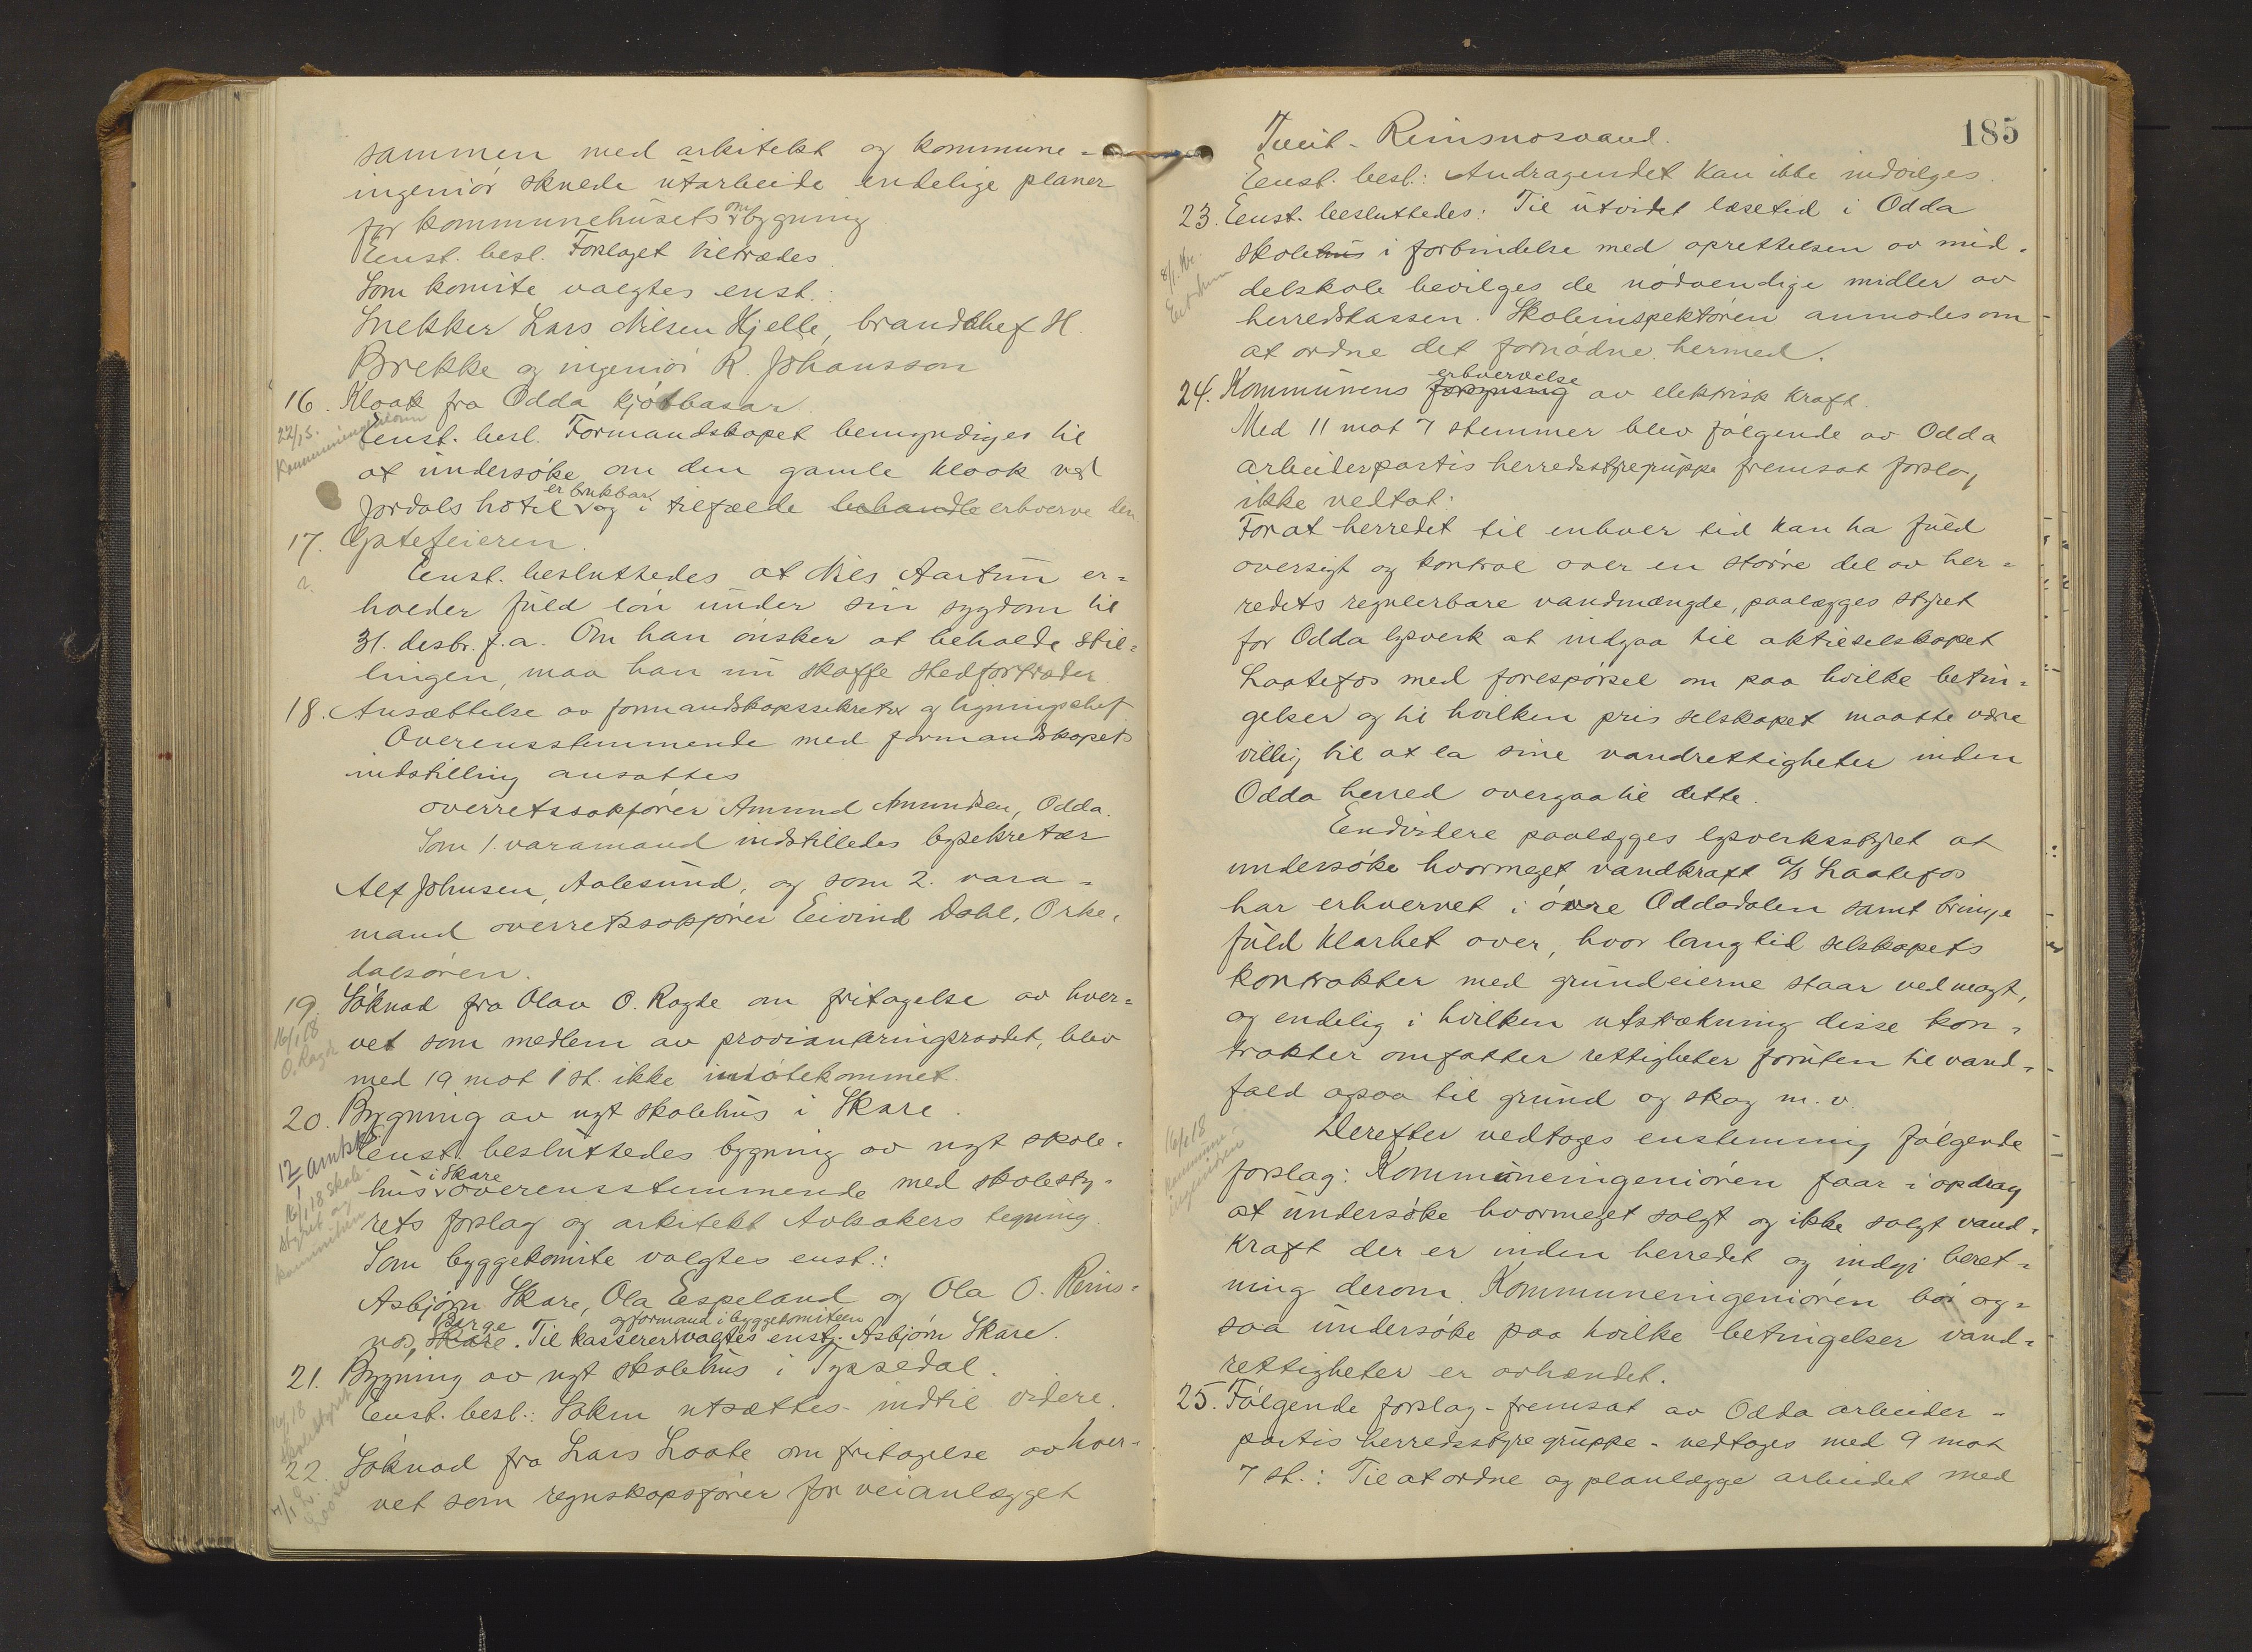 sammen med arkitekt og kommune-
ingeniör skulde utarbeide endelige planer
for kommunehusets ombygning
Eenst. besl. Forslaget tiltrædes.
Som komite valgtes enst.:
Snekker Lars Nilsen Hjelle, brandchef H.
Brekke og ingeniör R. Johansson
16. Kloak fra Odda kjötbasar.
22/1 18. Kommuneingeniören
Eenst. besl. Formandskapet bemyndiges til
at undersöke om den gamle kloak ved
Jordals hotel er brukbar og i tilfælde behandle erhverve den
17. Gatefeieren.
Eenst. besluttedes at Nils Aartun er-
holder fuld lön under sin sygdom til
31. desbr. f.a. Om han önsker at beholde stil-
lingen, maa han nu skaffe stedfortræder
18. Ansættelse av formandskapssekretær og ligningschef
Overensstemmende med formandskapets
indstilling ansattes
overretssakförer Amund Amundsen, Odda.
Som 1. varamand indstilledes bysekretær
Alf Johnsen, Aalesund, og som 2. vara-
mand overretssakförer Eivind Dahl, Orke-
dalsören.
19. Söknad fra Olav O. Ragde om fritagelse av hver-
16/1 18 O. Ragde
vet som medlem av provianteringsraadet, blev
med 19 mot 1 st. ikke imötekommet.
20. Bygning av nyt skolehus i Skare.
Eenst. besluttedes bygning av nyt skole-
hus i Skare overensstemmende med skolesty-
16/1 18 Skolestyret og komiteen
rets forslag og arkitekt Aolsakers tegning.
Som byggekomite valgtes enst.:
Asbjörn Skare, Ola Espeland og Ola O. Reins-
nos, Skare Berge. Til kasserer og formand i byggekomiteen valgtes enst. Asbjörn Skare.
21. Bygning av nyt skolehus i Tyssedal.
Eenst. besl.: Saken utsættes indtil videre.
22. Söknad fra Lars Loate om fritagelse av hver-
vet som regnskapsförer for veianlægget
185
Tveit - Reinsnosvand.
Eenst. besl.: Andragendet kan ikke indvilges.
23. Eenst. besluttedes: Til utvidet læsetid i Odda
skolehus i forbindelse med oprettelsen av mid-
delskole bevilges de nödvendige midler av
herredskassen. Skoleinspektören anmodes om
at ordne det fornödne hermed.
24. Kommunens forsyning erhvervelse av elektrisk kraft.
Med 11 mot 7 stemmer blev fölgende av Odda
arbeiderpartis herredsstyregruppe fremsat forslag
ikke vedtat:
For at herredet til enhver tid kan ha fuld
oversigt og kontrol over en större del av her-
redets regulerbare vandmængde, paalægges styret
for Odda lysverk at indgaa til aktieselskapet
Laatefos med forespörsel om paa hvilke betin-
gelser og til hvilken pris selskapet maatte være
villig til at la sine vandrettigheter inden
Odda herred overgaa til dette.
Endvidere paalægges lysverksstyret at
undersöke hvormeget vandkraft A/S Laatefos
har erhvervet i övre Oddadalen samt bringe
fuld klarhet over, hvor lang tid selskapets
kontrakter med grundeierne staar ved magt,
og endelig i hvilken utstrækning disse kon-
trakter omfatter rettigheter foruten til vand-
fald ogsaa til grund og skog m. v.
Derefter vedtages enstemmig fölgende
16/1 18 kommuneingeniören
forslag: Kommuneingeniören faar i opdrag
at undersöke hvormeget solgt og ikke solgt vand-
kraft der er inden herredet og indgi beret-
ning derom. Kommuneingeniören bör og-
saa undersöke paa hvilke betingelser vand-
rettigheter er avhændet.
25. Fölgende forslag - fremsat av Odda arbeider-
partis herredsstyregruppe - vedtages med 9 mot
7 st.: Til at ordne og planlægge arbeidet med